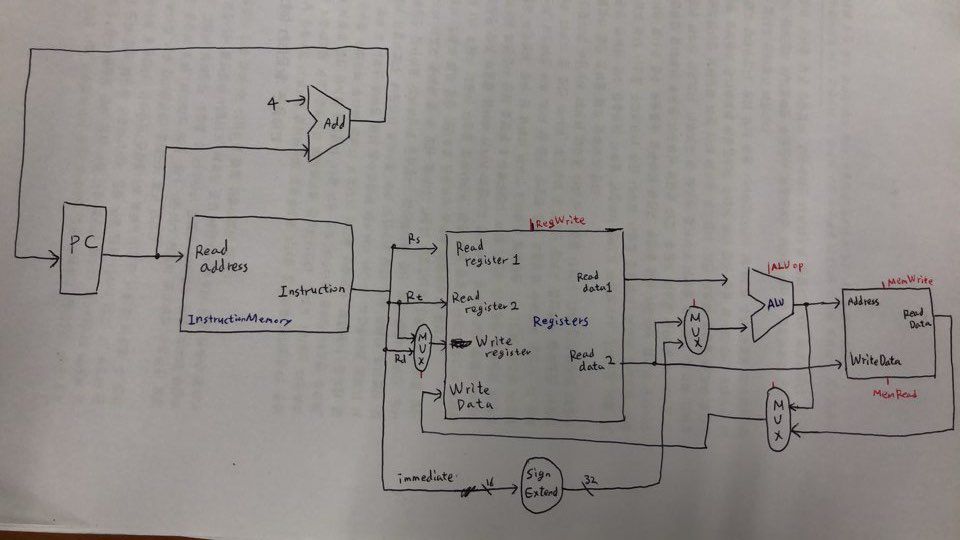 4
Add
PC
Read
address
Instruction
InstructionMemory
Rs
Rt
Rd
MUX
RegWrite
Read
register 1
Read
register 2
Write
register
Write
Data
Registers
Read
data1
Read
data 2
immediate
16
Sign
Extend
32
MUX
ALU op
ALU
MemWrite
Address
Read
Data
WriteData
MemRead
MUX